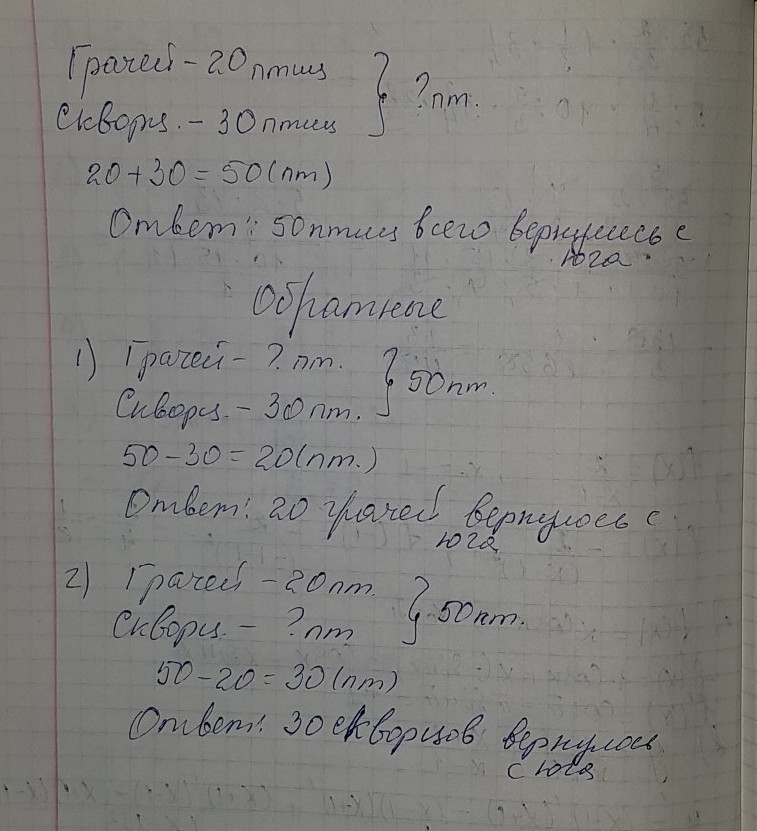 Грачей - 20 птиц } ? пт.
Скворц. - 30 птиц
20 + 30 = 50 (пт)
Ответ: 50 птиц всего вернулись с
юга.
Обратные
1) Грачей - ? пт. } 50 пт.
Скворц. - 30 пт.
50 - 30 = 20 (пт.)
Ответ: 20 грачей вернулось с
юга
2) Грачей - 20 пт. } 50 пт.
Скворц. - ? пт
50 - 20 = 30 (пт)
Ответ: 30 скворцов вернулось
с юга